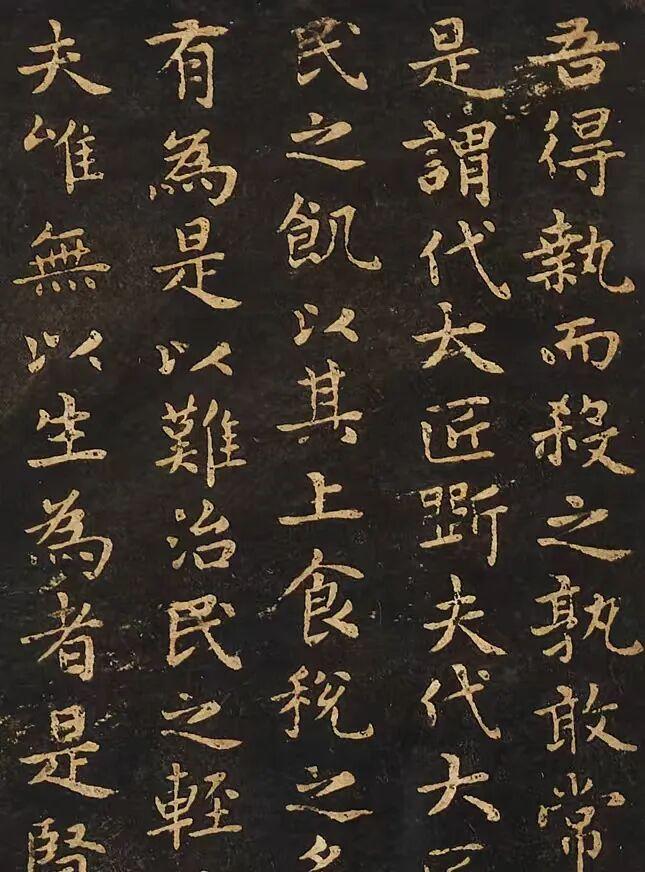 吾得執而殺之孰敢常
是謂代大匠斲夫代大
民之飢以其上食稅之
有為是以難治民之輕
夫唯無以生為者是賢